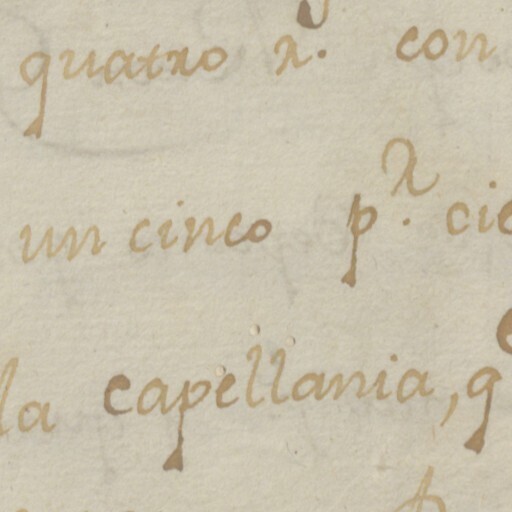 quatro r. con
un cinco p.r cie
la capellania, q